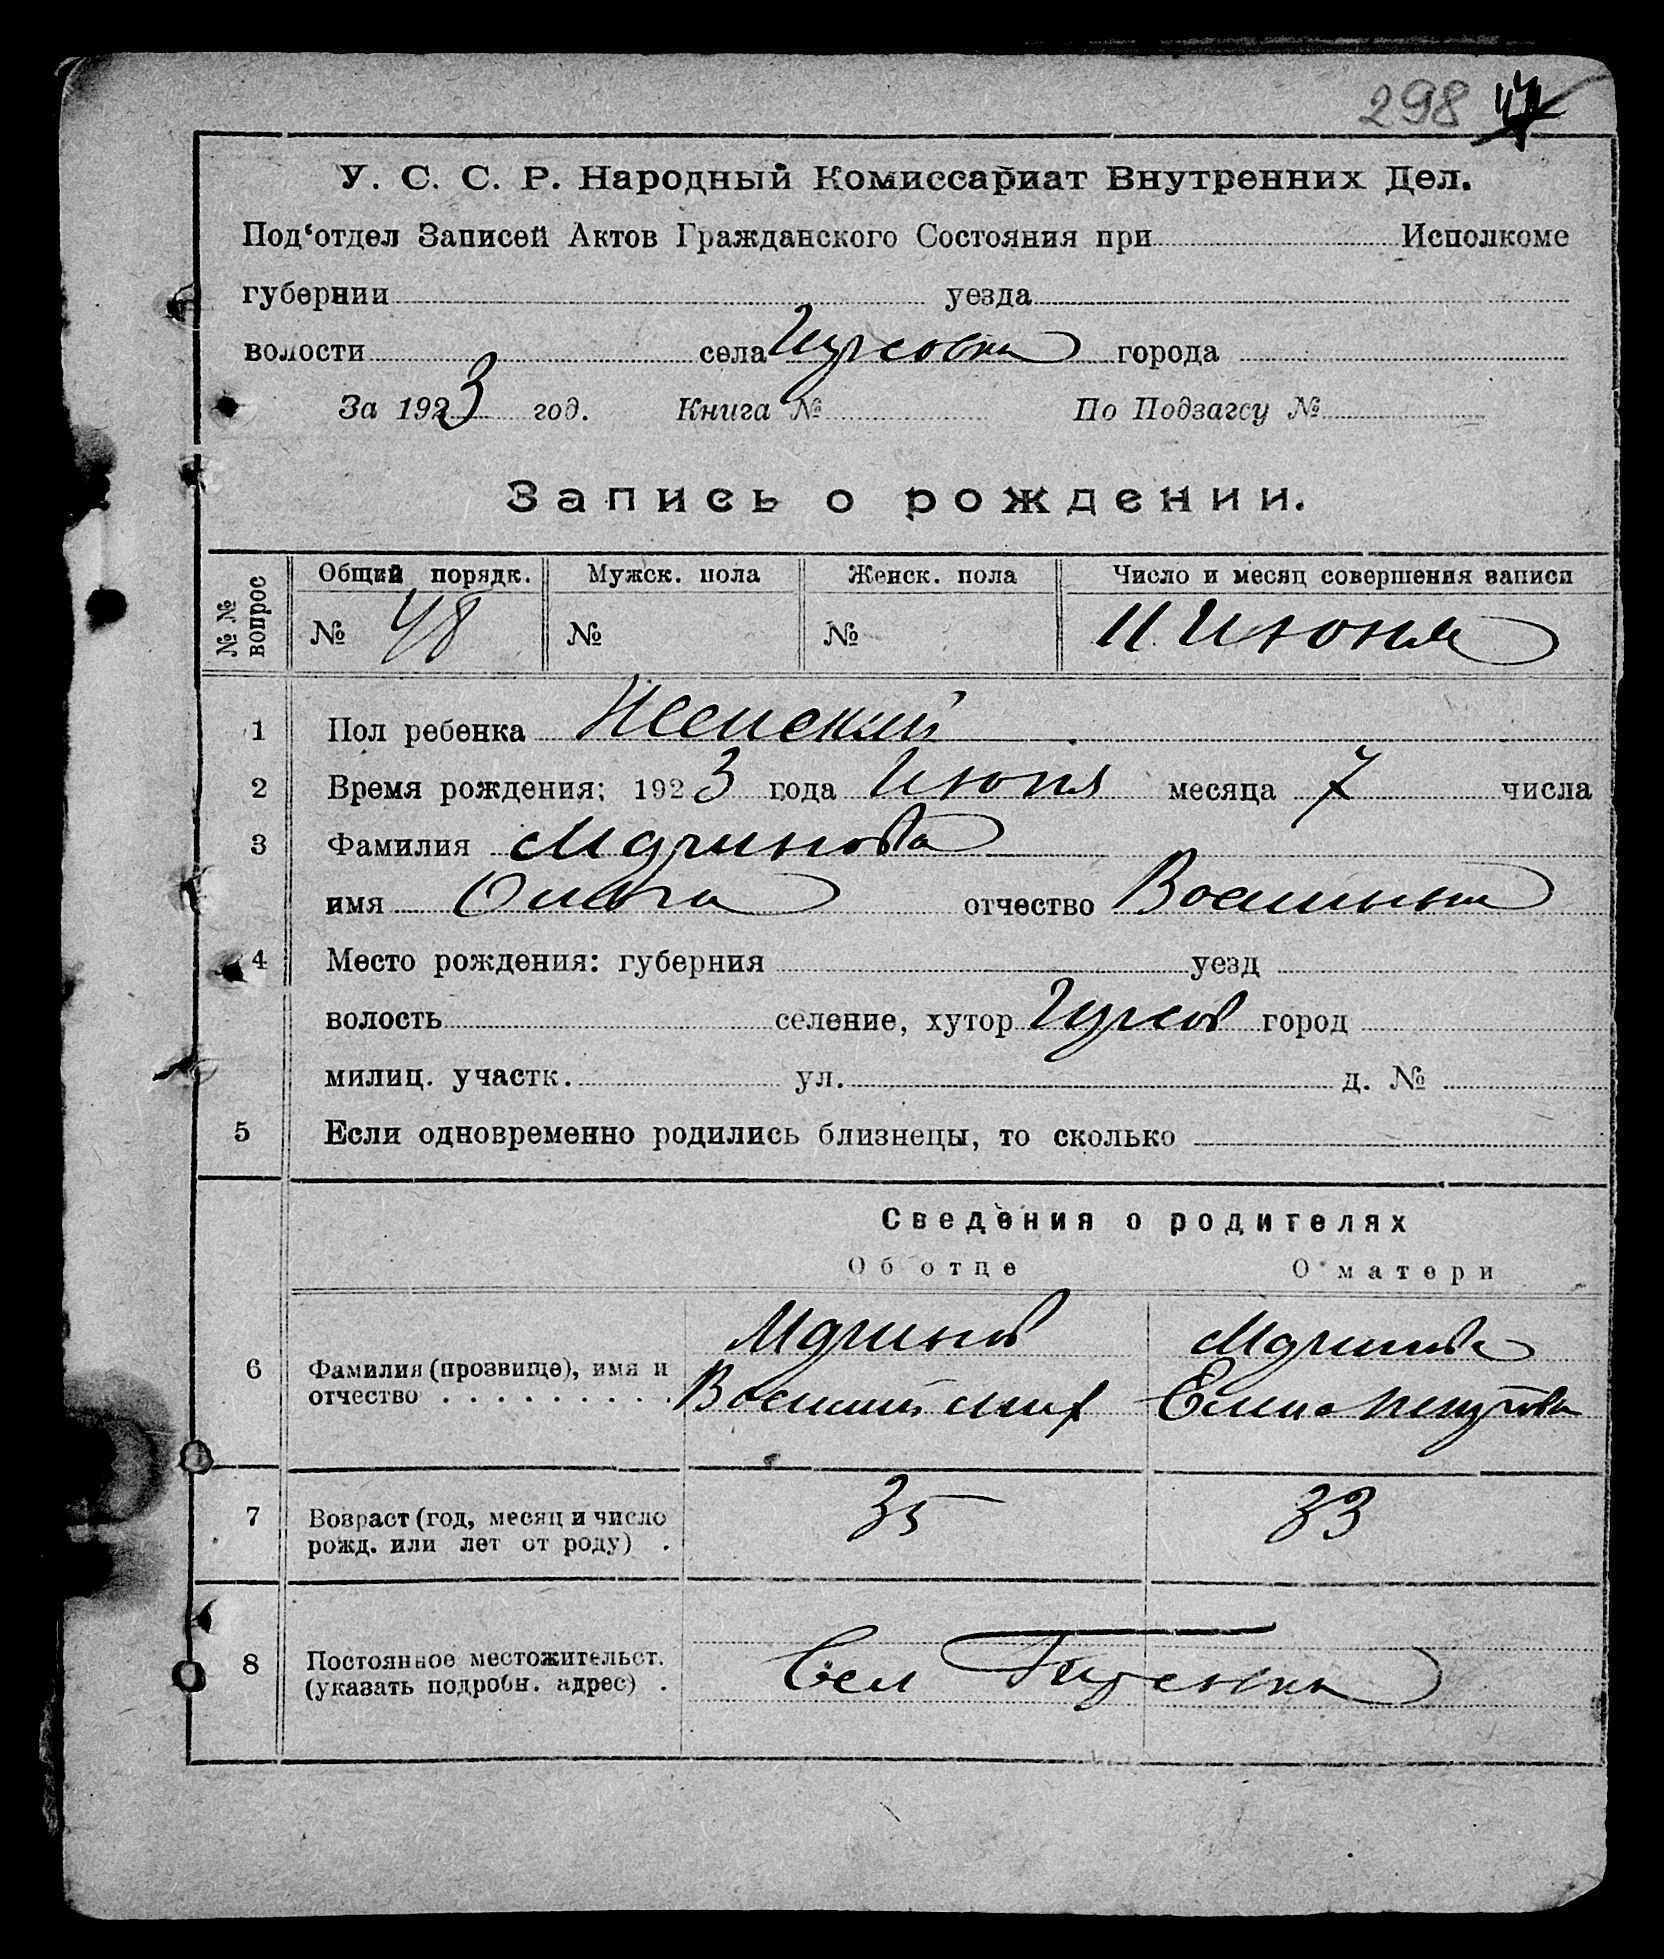 298
У. С. С. Р. Народный Комиссариат Внутренних Дел.
Под‘отдел Записей Актов Гражданского Состояния при Исполкоме
губернии уезда
волости села города
За 1923 год. Книга № По Подзагсу №
Запись о рождении.
№ № вопрос Общий порядк. Мужск. пола Женск. пола Число и месяц совершения записи
№ 48 № № 11 Июня
1 Пол ребенка Женский
2 Время рождения: 1923 года Июня месяца 7 числа
3 Фамилия
имя Ольга отчество
4 Место рождения: губерния уезд
волость селение, хутор город
милиц. участк. ул. д. №
5 Если одновременно родились близнецы, то сколько
Сведения о родителях
Об отце О матери
6 Фамилия (прозвище), имя и
отчество Василий Елена
7 Возраст (год, месяц и число
рожд. или лет от роду) 35 33
8 Постоянное местожительст.
(указать подробн. адрес) Сел